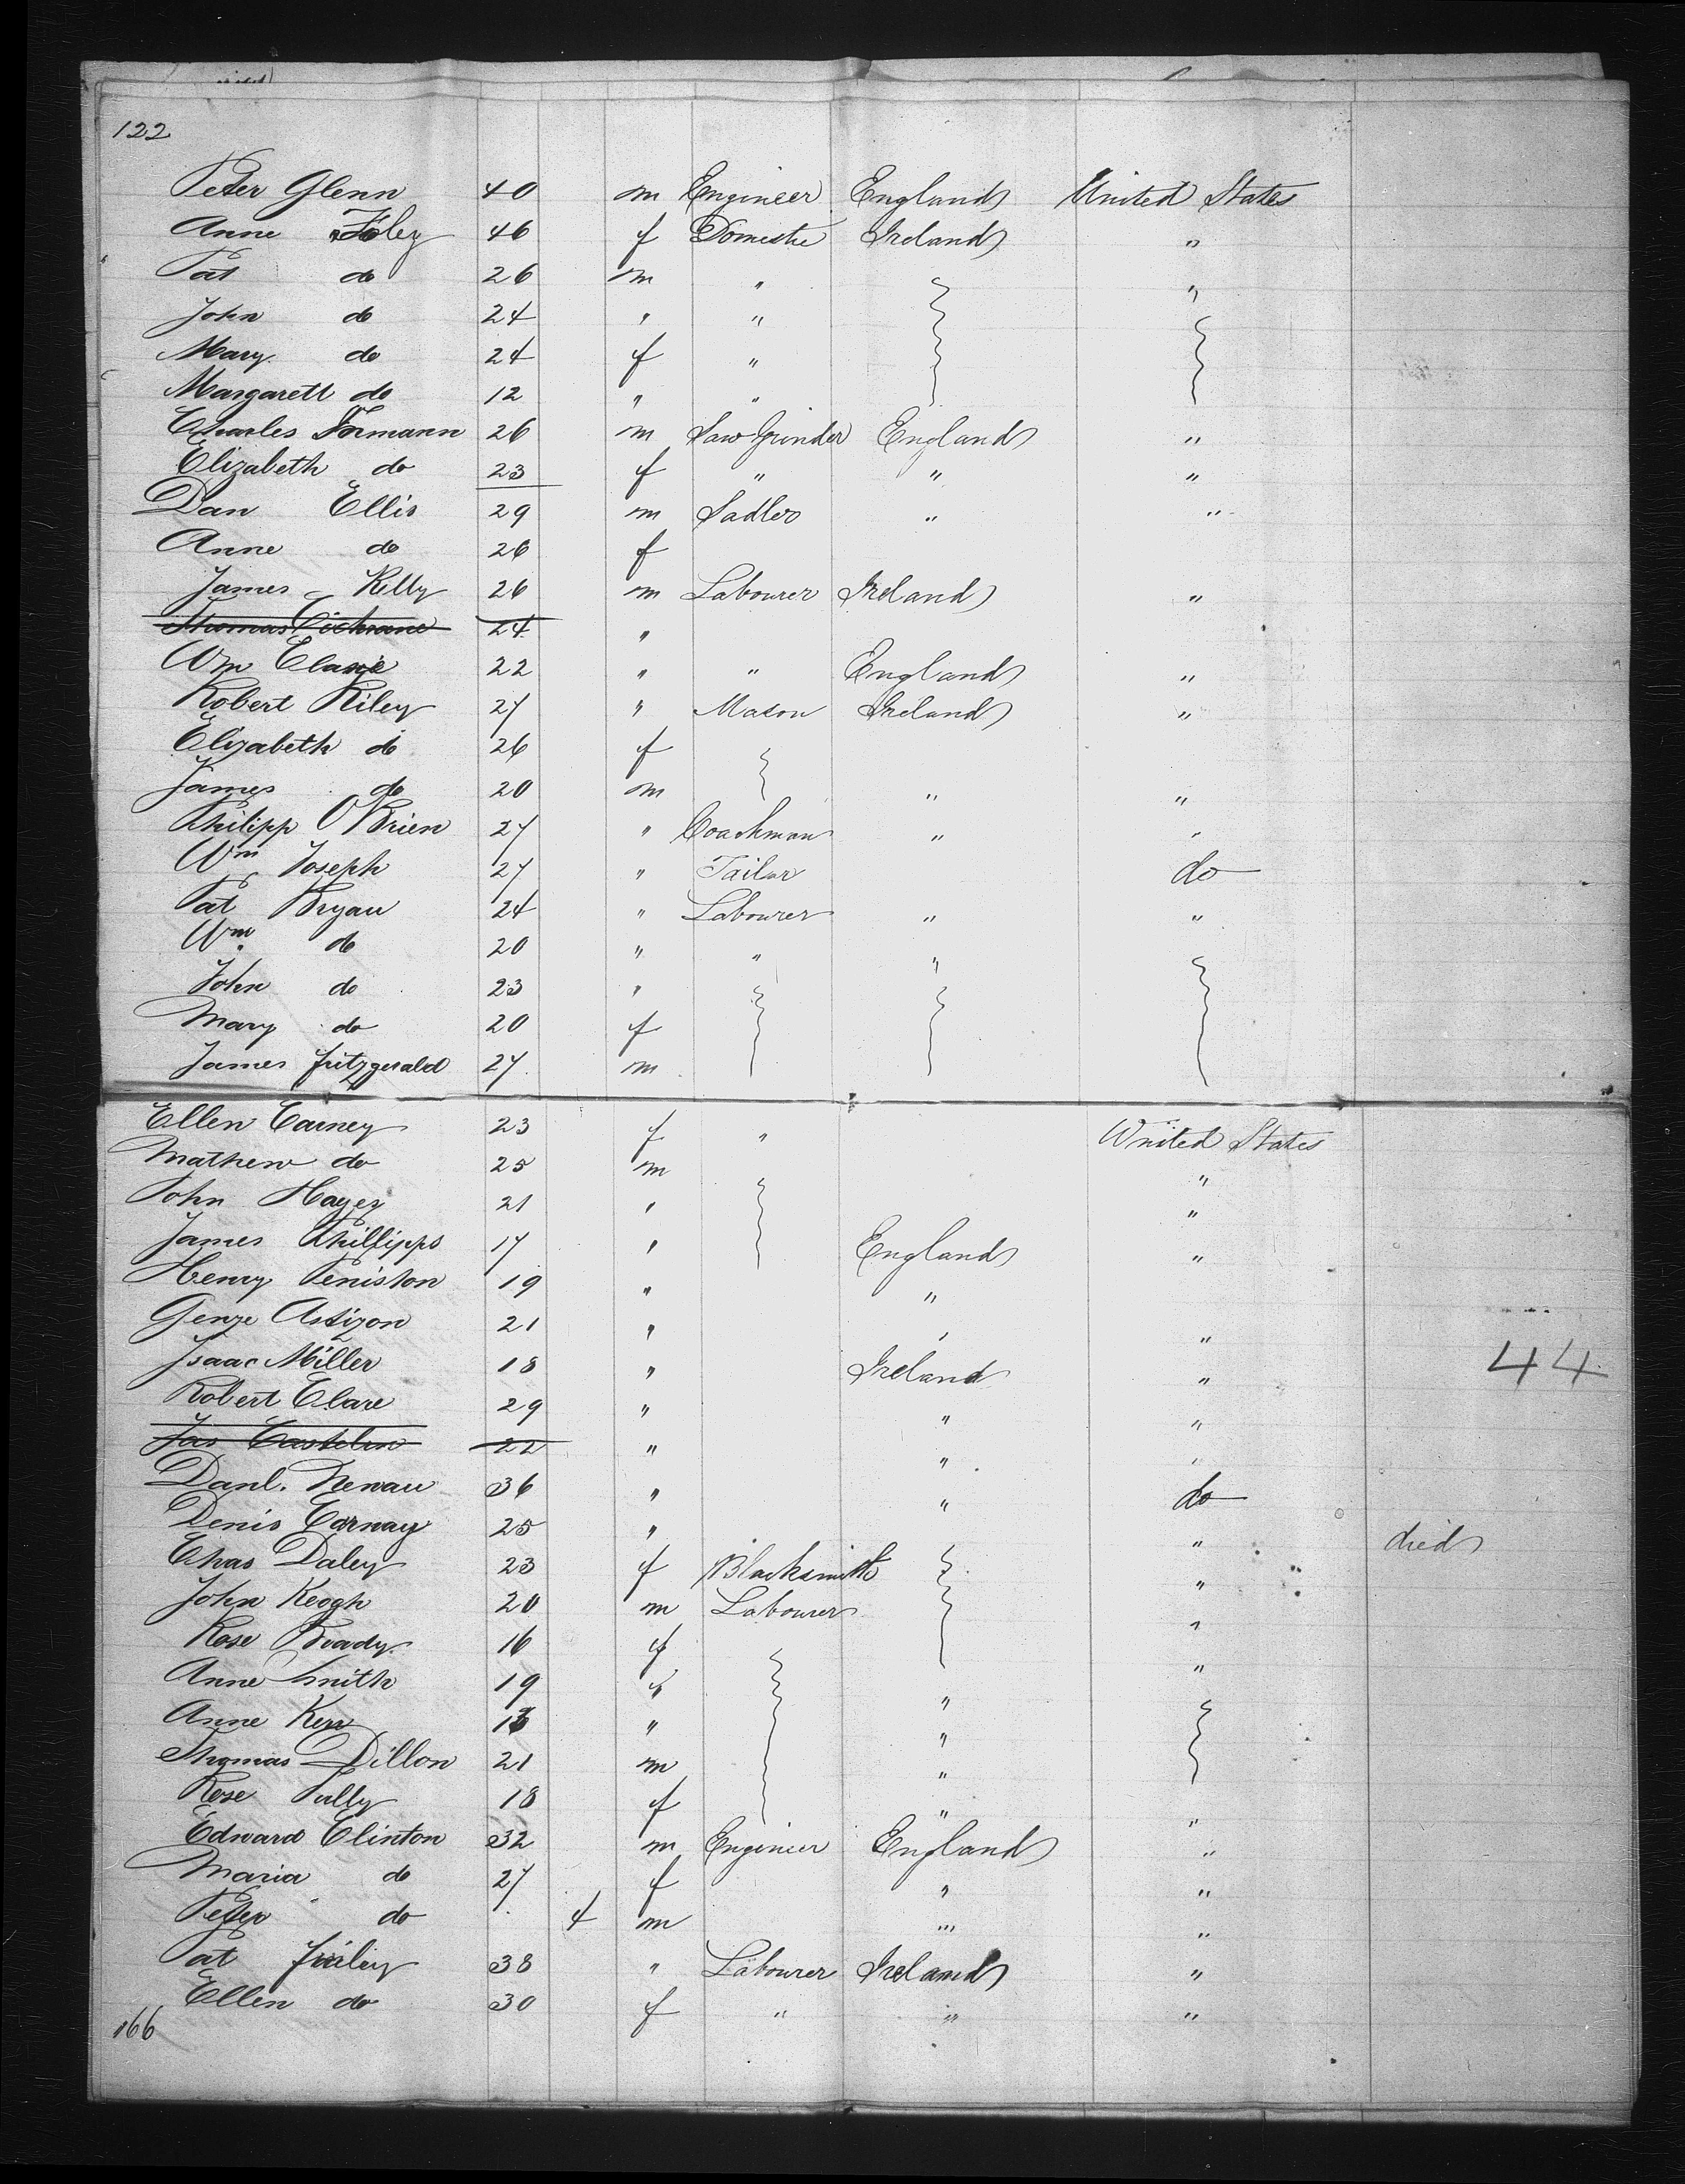 122
Peter Glenn 40 m Engineer England United States
Anne Foley 46 f Domestic Ireland "
Pat do 26 m " "
John do 24 " "
Mary do 24 f "
Margarett do 12 " "
Charles Formann 26 m Saw Grinder England "
Elizabeth do 23 f " " "
Dan Ellis 29 m Sadler " "
Anne do 26 f
James Kelly 26 m Labourer Ireland "
Thomas Cochrane 24 "
Wm 22 " " England "
Robert Riley 27 " Mason Ireland "
Elizabeth do 26 f
James do 20 m " "
Philipp O Brien 27 " Coachman " "
Wm Joseph 27 " Tailor do
Pat Bryan 24 " Labourer " "
Wm do 20 " " "
John do 23 "
Mary do 20 f
James fitzgerald 27 m
Ellen Carney 23 f " United States
Mathew do 25 m "
John Hayes 21 " "
James Phillipps 17 " England "
Henry Peniston 19 " "
21 " " "
Isaac Miller 18 " Ireland " 44
Robert Clare 29 " " "
Jas 22 " " "
Danl. 36 " " do
Denis Carnay 25 " " died
Chas Daley 23 f Blacksmith "
John Keogh 20 m Labourer "
Rose Brady 16 f "
Anne Smith 19 " "
Anne Kerr " "
Thomas Dillon 21 m "
Rose Tully 18 f " "
Edward Clinton 32 m Engineer England "
Maria do 27 f " "
Peter do 4 m " "
Pat 38 " Labourer Ireland "
Ellen do 30 f " " "
166